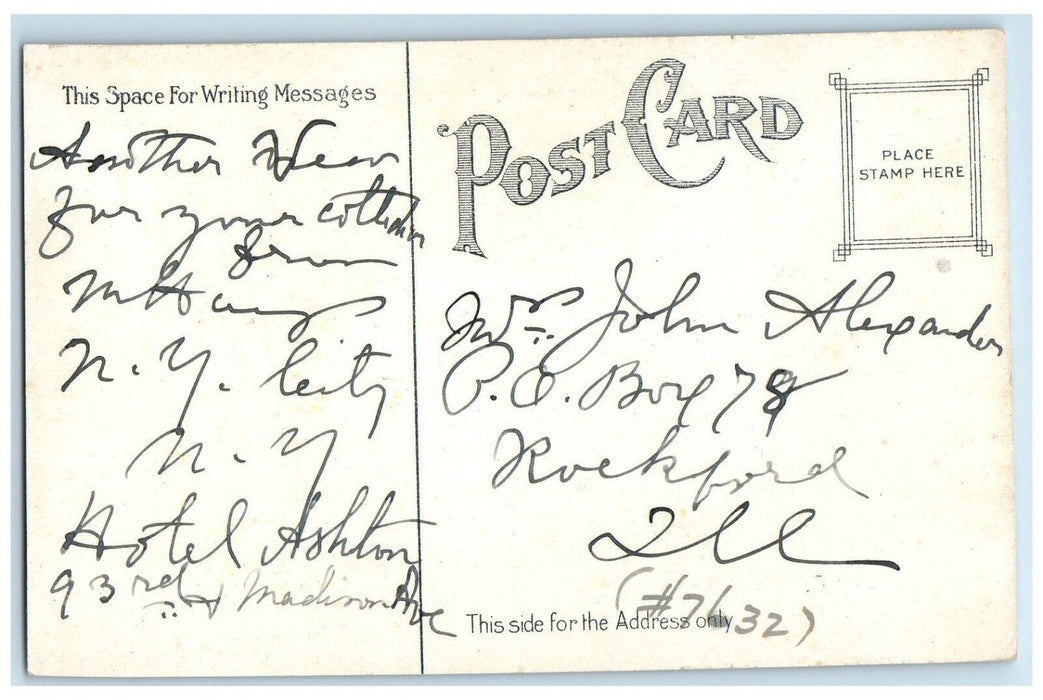 This Space For Writing Messages
Another View
for your collection
from
N. Y. City
N. Y
Hotel Ashton
93rd & Madison Ave
POST CARD
PLACE
STAMP HERE
Mrs. John Alexander
P. O. Box 78
Rockford
Ill
(#7632)
This side for the Address only